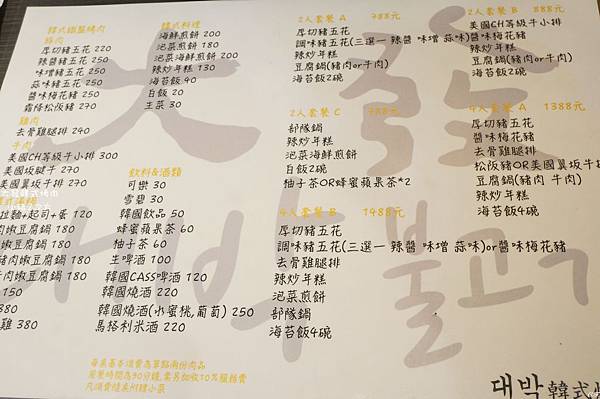 韓式鐵盤烤肉
豬肉
厚切豬五花 220
辣醬豬五花 250
味噌豬五花 250
蒜味豬五花 250
醬味梅花豬 250
霜降松阪豬 270
雞肉
去骨雞腿排 240
牛肉
美國CH等級牛小排 300
美國板腱牛 270
美國翼板牛 270
拉麵+起司+蛋 120
嫩豆腐鍋 180
嫩豆腐鍋 180
豬肉嫩豆腐鍋 180
牛肉嫩豆腐鍋 180
150
380
雞 380
韓式料理
海鮮煎餅 200
泡菜煎餅 180
泡菜海鮮煎餅 200
辣炒年糕 130
海苔飯 40
白飯 20
生菜 30
飲料&酒類
可樂 30
雪碧 30
韓國飲品 50
蜂蜜蘋果茶 60
柚子茶 60
生啤酒 100
韓國CASS啤酒 120
韓國燒酒 220
韓國燒酒(水蜜桃,葡萄) 250
馬格利米酒 220
2人套餐 A 788元
厚切豬五花
調味豬五花(三選一 辣醬 味噌 蒜味)
辣炒年糕
豆腐鍋(豬肉or牛肉)
海苔飯2碗
2人套餐 B 888元
美國CH等級牛小排
厚切豬五花
辣炒年糕
豆腐鍋(豬肉or牛肉)
海苔飯2碗
2人套餐 C 788元
部隊鍋
辣炒年糕
泡菜海鮮煎餅
白飯2碗
柚子茶OR蜂蜜蘋果茶*2
4人套餐 A 1388元
厚切豬五花
醬味梅花豬
去骨雞腿排
松阪豬OR美國翼板牛
豆腐鍋(豬肉 牛肉)
辣炒年糕
海苔飯4碗
4人套餐 B 1488元
厚切豬五花
調味豬五花(三選一 辣醬 味噌 蒜味)or醬味梅花豬
去骨雞腿排
辣炒年糕
泡菜煎餅
部隊鍋
海苔飯4碗
大發
대박 불고기
대박韓式